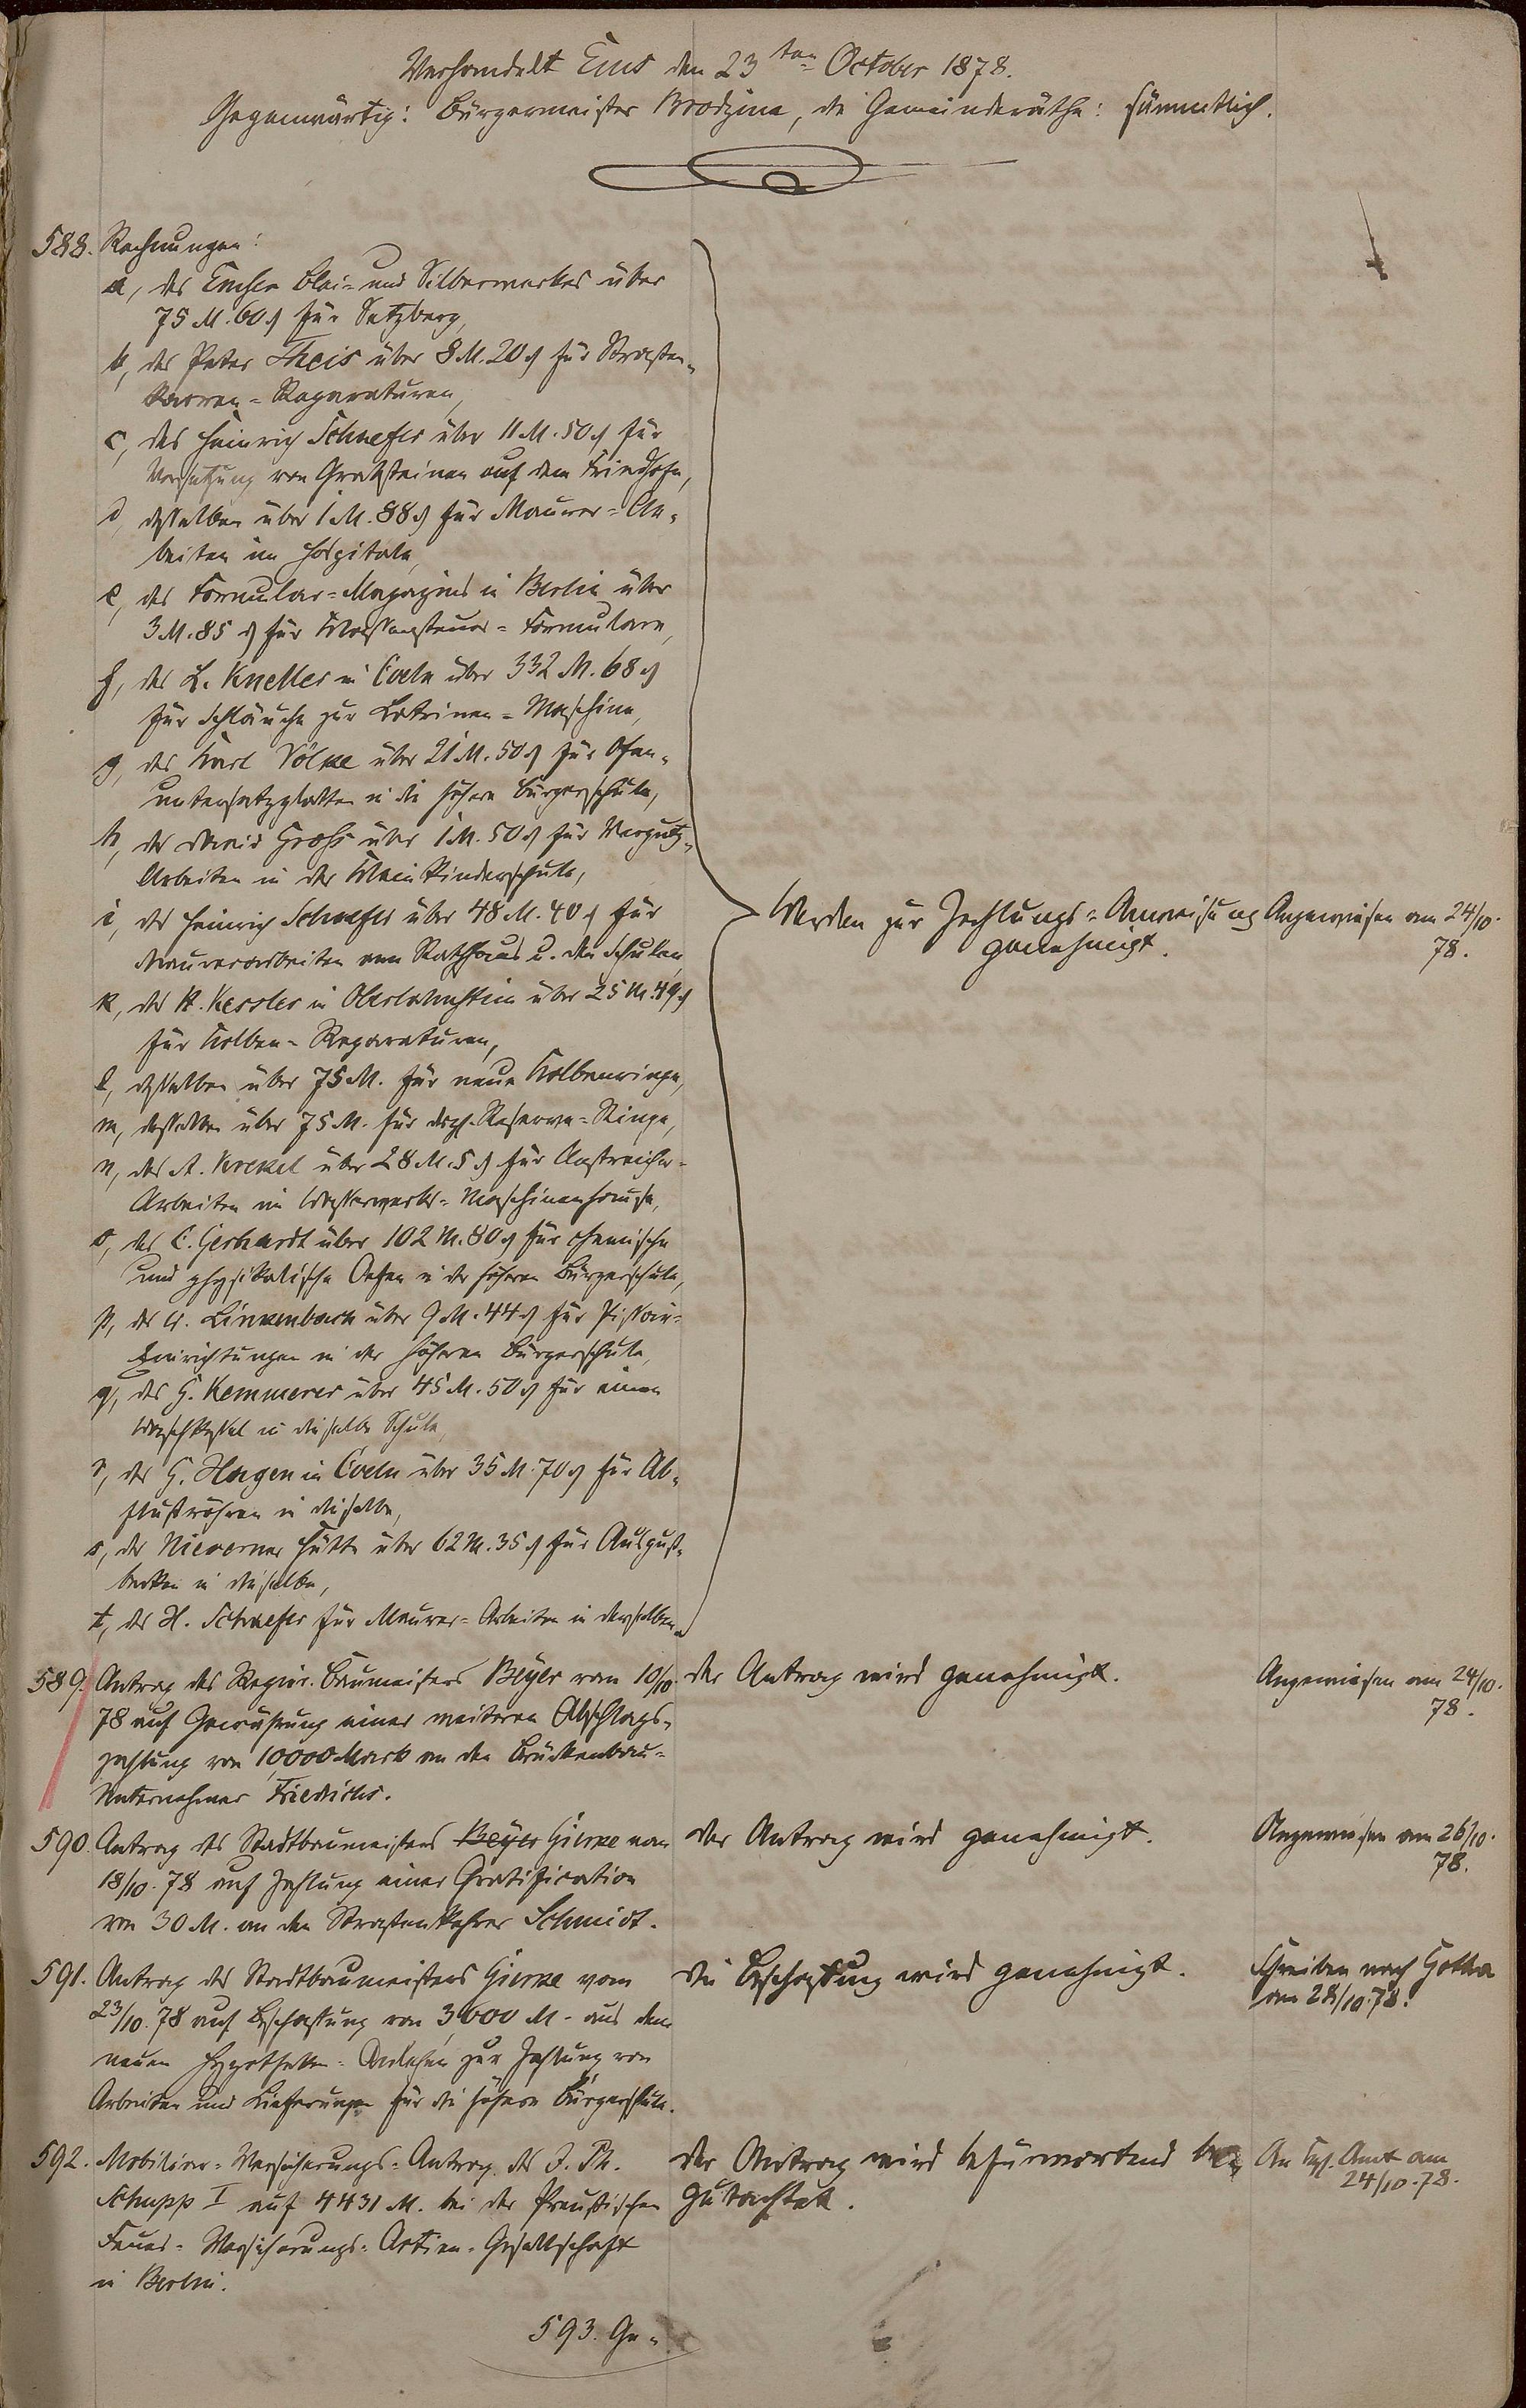 Verhandelt Ems den 23ten October 1878.
Gegenwärtig: Bürgermeister Brodzina, die Gemeinderäthe: sämmtlich.
588. Rechnungen:
a, des Emser Blei- und Silberwerkes über
75 M. 60 ₰ für Setzberg,
b, des Peter Theis über 8 M. 20 ₰ für Strassen-
karren-Reparaturen,
c, des Heinrich Schaefer über 11 M. 50 ₰ für
Versetzung von Grabsteinen auf dem Friedhofe,
d, desselben über 1 M. 88 ₰ für Maurer-Ar-
beiten im Hospitale,
e, des Formular-Magazins in Berlin über
3 M. 85 ₰ für Klassensteuer-Formulare,
f, des L. Kneller in Coeln über 332 M. 68 ₰
für Schläuche zur Latrinen-Maschine,
g, des Karl Völke über 21 M. 50 ₰ für Ofen-
untersatzplatten in die höhere Bürgerschule,
h, der David Groß über 1 M. 50 ₰ für Verputz-
Arbeiten in der Kleinkinderschule,
i, des Heinrich Schaefer über 48 M. 40 ₰ für
Maurerarbeiten am Rathhaus u. den Schulen,
k, des H. Kessler in Oberlahnstein über 25 M. 49 ₰
für Kolben-Reparaturen,
l, desselben über 75 M. für neue Kolbenringe,
m, desselben über 75 M. für desgl. Reserve-Ringe,
n, des A. Krekel über 28 M. 5 ₰ für Anstreicher-
Arbeiten im Wasserwerks-Maschinenhause,
o, des C. Gerhardt über 102 M. 80 ₰ für chemische
und physikalische Oefen in der höheren Bürgerschule,
p, des A. Linkenbach über 9 M. 44 ₰ für Pissoir-
Einrichtungen in der höheren Bürgerschule,
q, des G. Kemmerer über 45 M. 50 ₰ für einen
Waschkessel in dieselbe Schule,
r, des G. Hagen in Coeln über 35 M. 70 ₰ für Ab-
flußröhren in dieselbe,
s, der Nieverner Hütte über 62 M. 35 ₰ für Ausguß-
becken in dieselbe,
t, des H. Schaefer für Maurer-Arbeiten in derselben.
Werden zur Zahlungs-Anweisung
genehmigt.
Angewiesen am 24/10.
78.
589. Antrag des Regier. Baumeisters Beyer vom 10/10.
78 auf Gewährung einer weiteren Abschlags-
zahlung von 10,000 Mark an den Brückenbau-
Unternehmer Friedrichs.
Der Antrag wird genehmigt.
Angewiesen am 24/10.
78.
590. Antrag des Stadtbaumeisters Beyer Gierke vom
18/10. 78 auf Zahlung einer Gratification
von 30 M. an den Strassenkehrer Schmidt.
Der Antrag wird genehmigt.
Angewiesen am 26/10.
78.
591. Antrag des Stadtbaumeisters Gierke vom
23/10. 78 auf Beschaffung von 3,600 M. aus dem
neuen Hypotheken-Anlehen zur Zahlung von
Arbeiten und Lieferungen für die höhere Bürgerschule.
Die Beschaffung wird genehmigt.
Schreiben nach Gotha
am 28/10. 78.
592. Mobiliar-Versicherungs-Antrag des J. Ph.
Schupp I auf 4431 M. bei der Preußischen
Feuer-Versicherungs-Actien-Gesellschaft
in Berlin.
Der Antrag wird befürwortend be-
gutachtet.
An Kgl. Amt am
24/10. 78.
593. Ge-